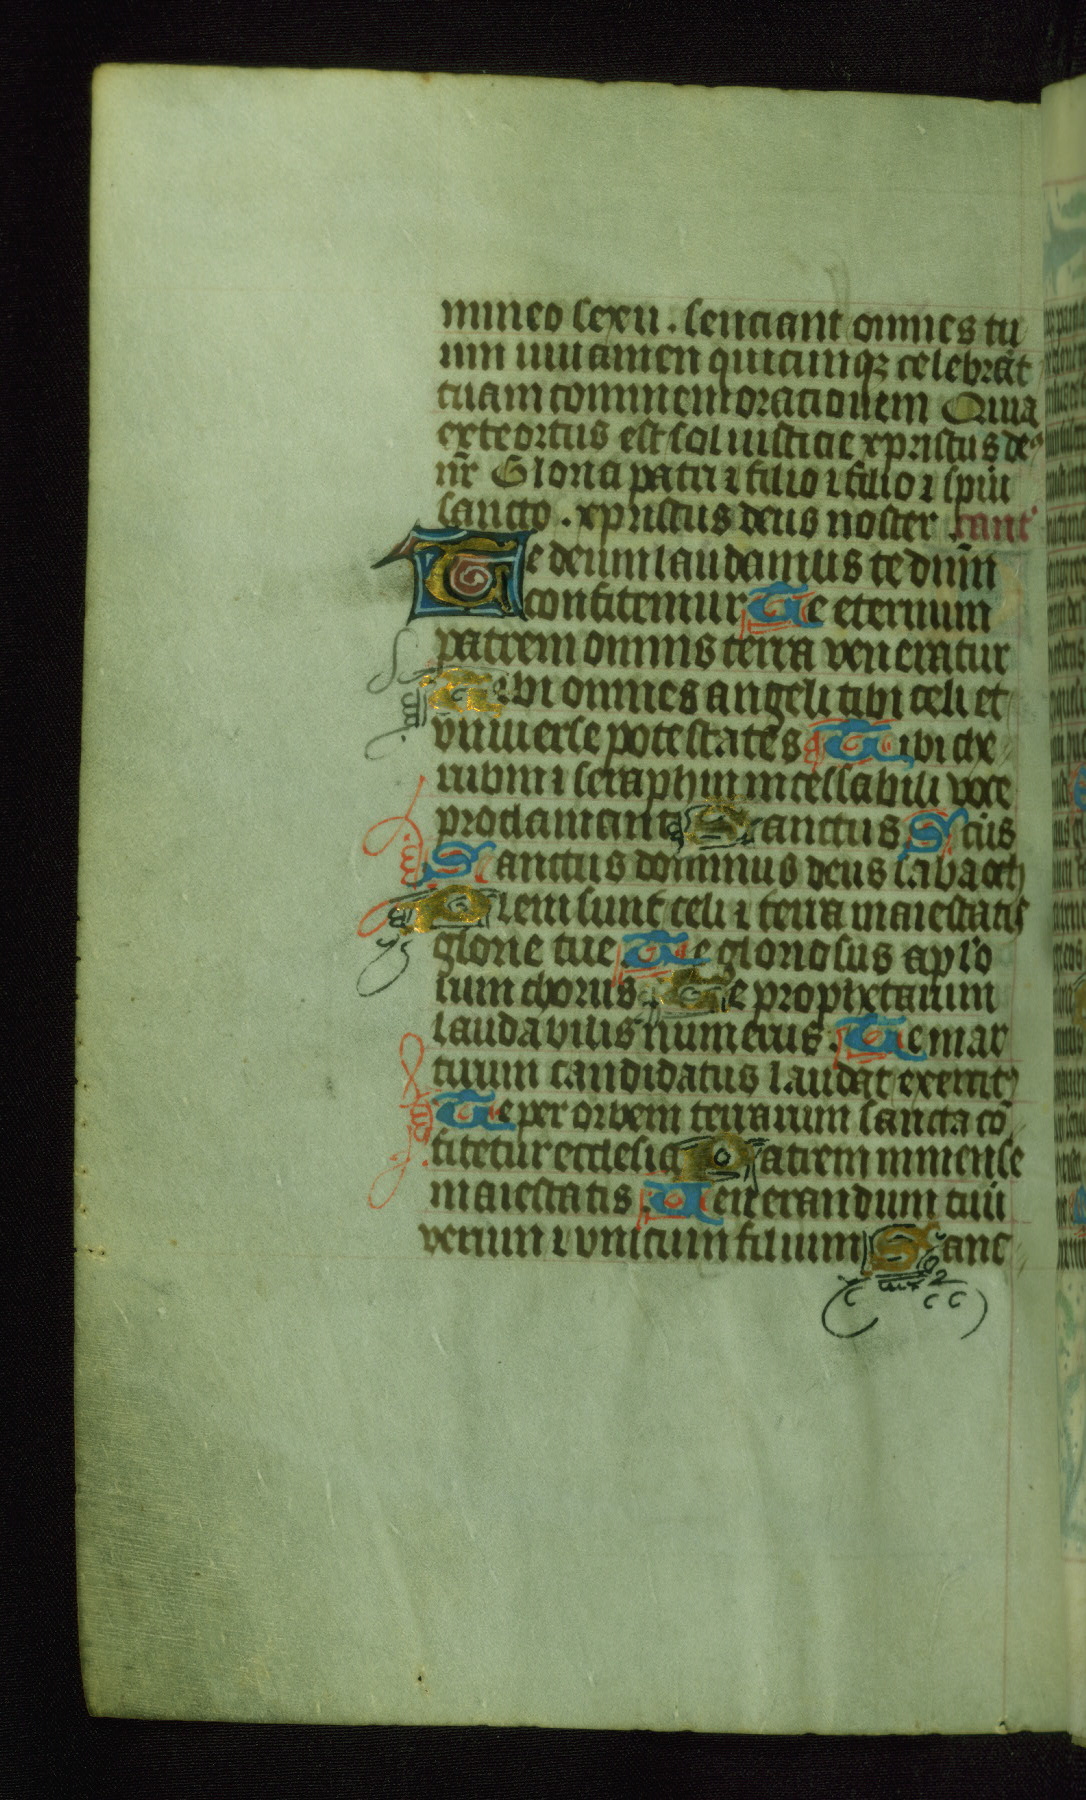 mineo sexu . senciant omnes tu
um iuuamen quicumqz celebrāt
tuam commemoracionem Quia
ex te ortus est sol iusticie xpristus deꝰ
nr̄ Gloria patri ⁊ filio ⁊ filio ⁊ spiū
sancto . xpristus deus noster cantꝰ
Te deum laudamus te dn̄m
confitemur Te eternum
patrem omnis terra veneratur
Tibi omnes angeli tibi celi et
vniuerse potestates Tibi che
rubin ⁊ seraphin incessabili voce
proclamant Sanctus Sctūs
Sanctus dominus deus sabaoth
Pleni sunt celi ⁊ terra maiestatis
glorie tue Te gloriosus aplo
rum chorus Te prophetarum
laudabilis numerus . Te mar
tirum candidatus laudat exercitꝰ
Te per orbem terrarum sancta cō
fitetur ecclesia Patrem inmense
maiestatis . Venerandum tuū
verum ⁊ vnicum filium Sanc